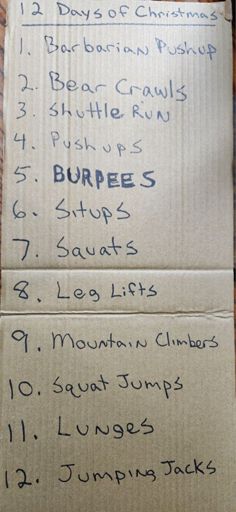 12 Days of Christmas
1. Barbarian Pushup
2. Bear Crawls
3. Shuttle Run
4. Pushups
5. BURPEES
6. Situps
7. Squats
8. Leg Lifts
9. Mountain Climbers
10. Squat Jumps
11. Lunges
12. Jumping Jacks